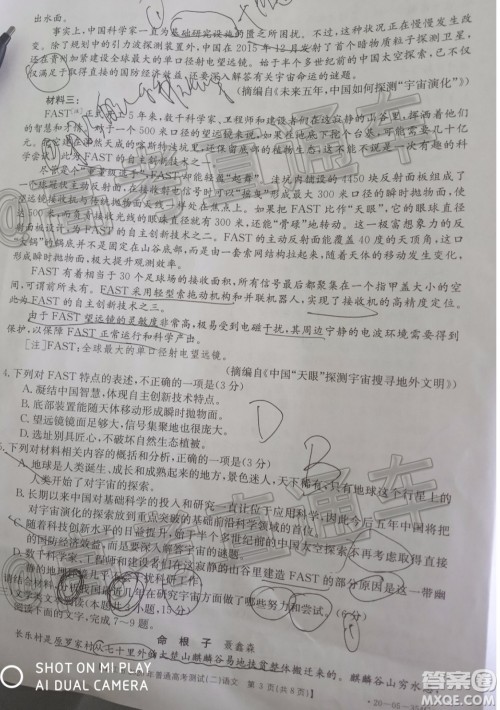 出水面。
事实上,中国科学家一直为基础研究设施的匮乏所困扰。不过,这种状况正在慢慢发生改
变。除了规划中的引力波探测装置外,中国在2015年12月发射了首个暗物质粒子探测卫星,
还在贵州加紧建设全球最大的单口径射电望远镜。始于半个多世纪前的中国太空探索,已不仅
仅满足于取得直接的国防经济效益,还要深入解答有关宇宙命运的谜题。
(摘编自《未来五年,中国如何探测“宇宙演化”》)
材料三:
FAST
5年来,数千科学家、工程师和建设者们在这寂静的山谷里,挥洒着他们
的智慧和汗水。对于一个500米口径的望远镜来说,如果在地底下挖个台基,可能需要几十亿
元
天然成的喀斯特洼地里,还保留底布的植物生态,根本不花钱。这不仅是一次有趣的科
学尝试,此为FAST的自主创新技术之一。
尽管是个“重量级选手”,FAST却能轻盈“起舞”。洼坑内铺设的4450块反射面板组成了
一个球冠状主动反射面,在接收射电信号时可以“摇曳”形成最大300米口径的瞬时抛物面,使
望远镜接收机与传统抛物面天线一样处在焦点上。如果把FAST比作“天眼”,它的眼球直径
达500米,而真资接收光线的眼珠直径就有300米,还能“骨碌”地转动。这一极富想象力的反
射面板设计,为FAST的自主创新技术之二。FAST的主动反射面能覆盖40度的天顶角,这口
“大锅”的锅底并不是固定在山谷底部,而是由一套索网结构拉起来,随着天体的移动发生变化,
形成瞬时抛物面,极大提升观测效率。
FAST有着相当于30个足球场的接收面积,所有信号最后都聚集在一个指甲盖大小的空
间,可谓前所未有。FAST采用轻型索拖动机构和并联机器人,实现了接收机的高精度定位。
此为FAST的自主创新技术之三。
由于FAST望远镜的灵敏度非常高,极易受到电磁干扰,其周边宁静的电波环境需要得到
保护,以保障FAST正常运行和科学产出。
[注]FAST:全球最大的单口径射电望远镜。
(摘编自《中国“天眼”探测宇宙搜寻地外文明》)
4.下列对FAST特点的表述,不正确的一项是(3分)
A.凝结中国智慧,体现自主创新技术特点。
B.底部装置能随天体移动形成瞬时抛物面。
C.望远镜镜面足够大,信号集聚地也很庞大。
D.选址别具匠心,不破坏自然生态植被。
D
5.下列对材料相关内容的概括和分析,正确的一项是(3分)
B
A.地球是人类诞生、成长和成熟起来的地方,景色迷人,天下稀有,只有地球这个行星上的
人类开始了对宇宙的探索。
B.长期以来中国对基础科学的投入和研究一直让位于应用科学,因此今后五年中国将把
对宇宙演化的探索放到重点突破的基础前沿科学领域的首位。
C.随着科技创新水平的日益提升,始于半个多世纪前的中国太空探索不再考虑取得直接
的国防经济效益,而是要深入解答宇宙的谜题。
D.数千科学家、工程师和建设者们在这寂静的山谷里建造FAST的部分原因是这一带幽
6.请结合材料,分析我国近几年在研究宇宙方面做了哪些努力和尝试。(6分)
(本题共3小题,15分)
阅读下面的文字,完成7~9题。
命 根 子 聂鑫森
长乐村是原罗家村从七十里外的大楚山麒麟谷易地扶贫整体搬迁来的。麒麟谷山穷水
年普通高考测试(二)语文 第3页(共8页)】
SHOT ON MI PLAY
AI DUAL CAMERA
答案圈
MXQE.COM